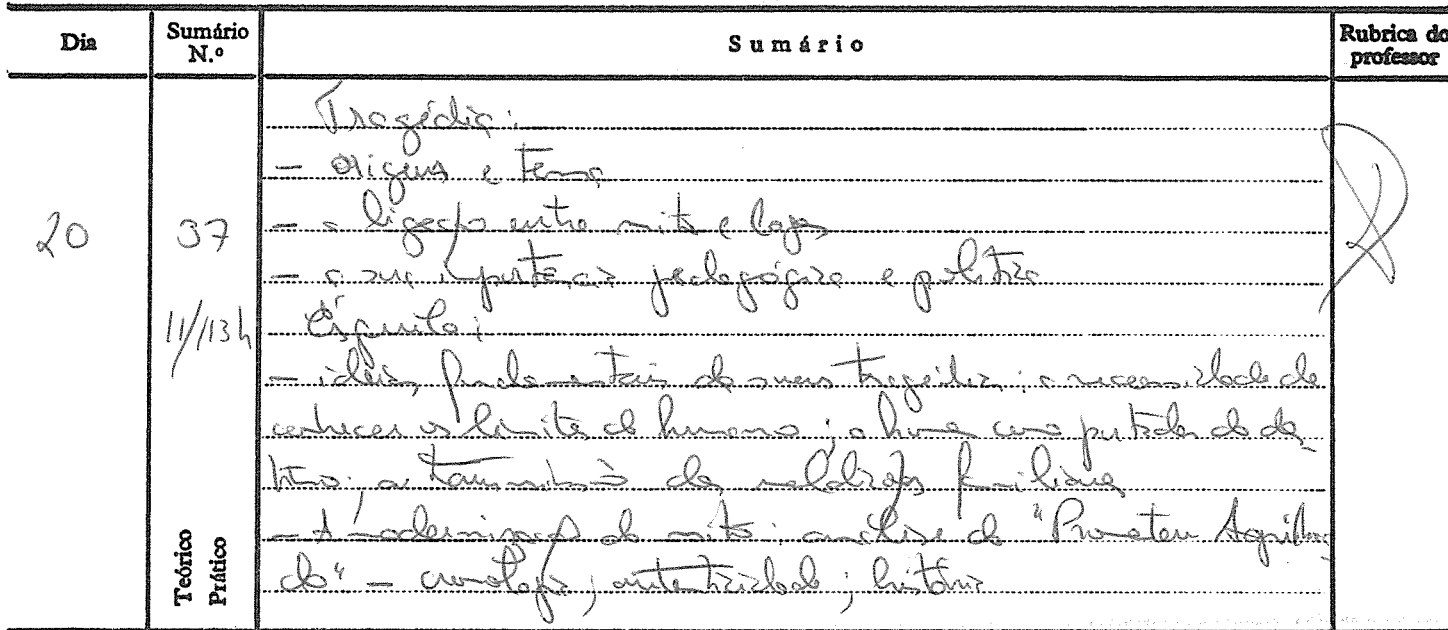 Dia
Sumário N.º
Sumário
Rubrica do professor
Tragédia:
- origens e tema
20
37
- a ligação entre mito e logos
- a sua importância pedagógica e política
11/13h
Ésquilo:
- ideias fundamentais de suas tragédias: a necessidade de
conhecer os limites do humano; o homem como portador do des
tino; a transmissão das maldições familiares
- A modernização do mito: análise do "Prometeu Agrilhoa
do" - cronologia; autenticidade; história
Teórico
Prático